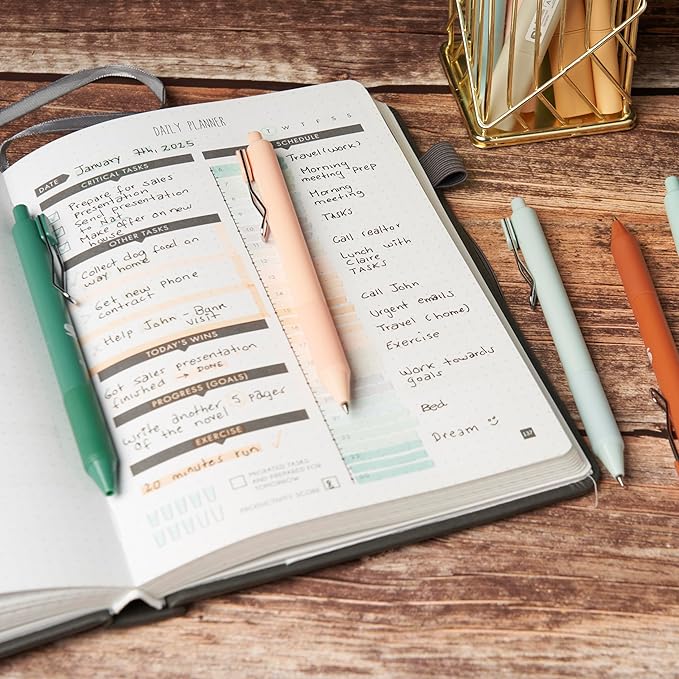 DAILY PLANNER
T W T F S S
DATE
January 7th, 2025
CRITICAL TASKS
Prepare for sales
presentation
Send presentation
to Nat
Make offer on new
house
OTHER TASKS
Collect dog food on
way home
Get new phone
contract
Help John - Bank
visit
TODAY'S WINS
Got sales presentation
finished → DONE
PROGRESS (GOALS)
Write another 5 pages
of the novel
EXERCISE
20 minutes run ✓
MIGRATED TASKS
AND PREPARED FOR
TOMORROW
PRODUCTIVITY SCORE
SCHEDULE
Travel (work)
Morning
meeting prep
Morning
meeting
TASKS
Call realtor
Lunch with
Claire
TASKS
Call John
Urgent emails
Travel (home)
Exercise
Work towards
goals
Bed
Dream